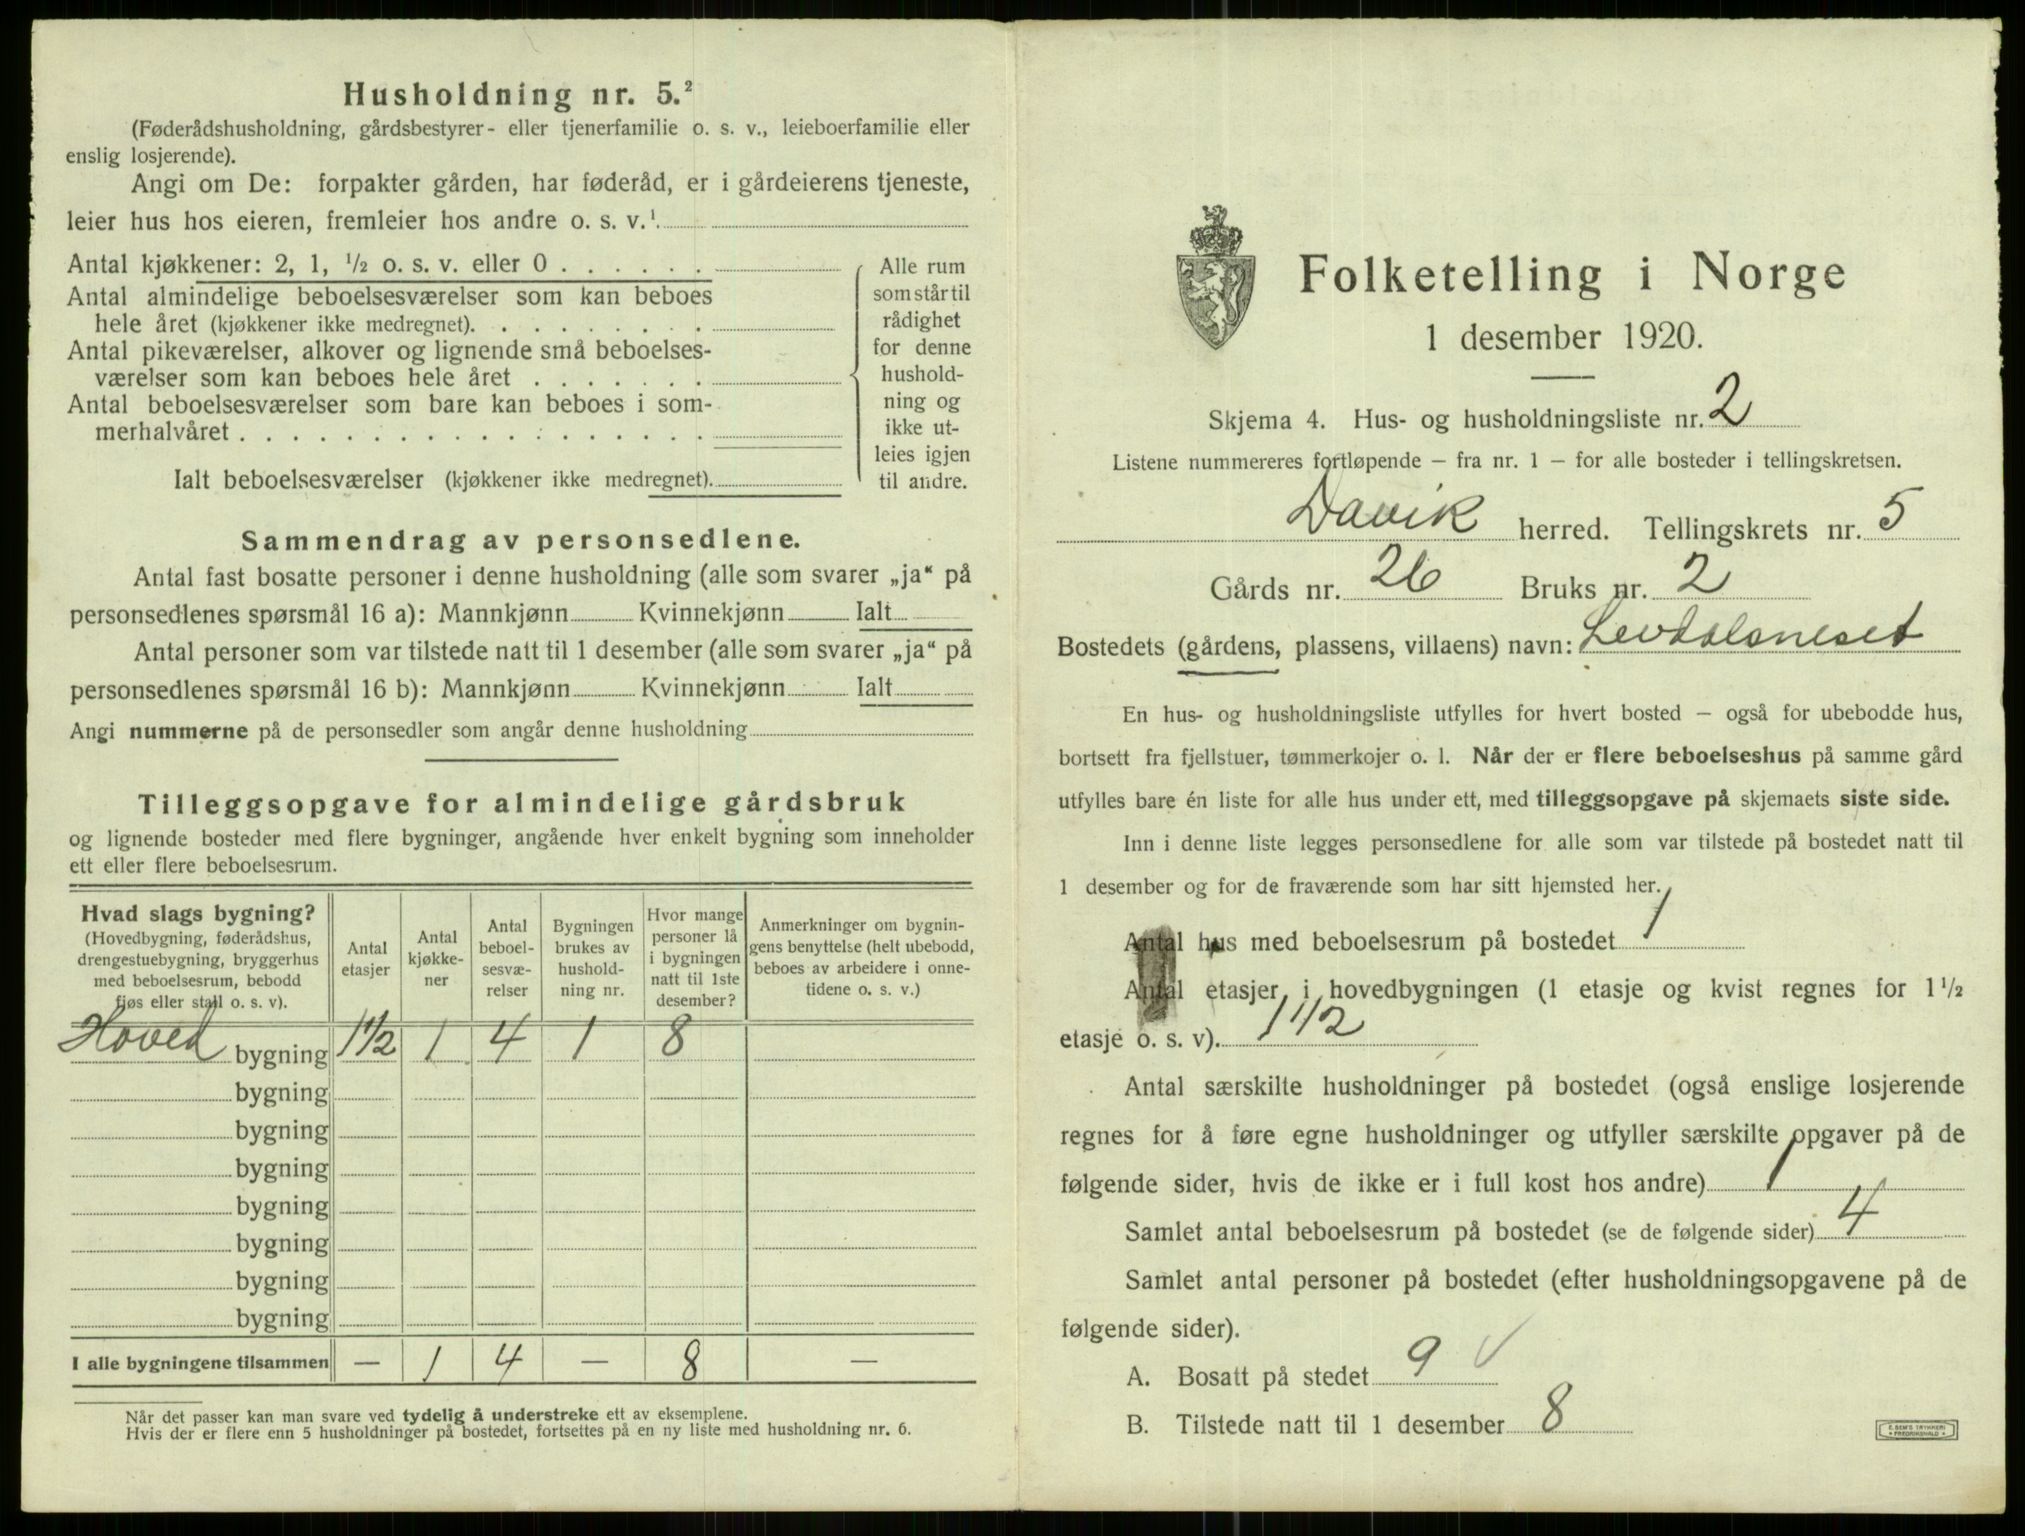 Husholdning nr. 5.²
(Føderådshusholdning, gårdsbestyrer- eller tjenerfamilie o. s. v., leieboerfamilie eller
enslig losjerende).
Angi om De: forpakter gården, har føderåd, er i gårdeierens tjeneste,
leier hus hos eieren, fremleier hos andre o. s. v.¹.
Antal kjøkkener: 2, 1, ½ o. s. v. eller 0 . . . . . .
Antal almindelige beboelsesværelser som kan beboes
hele året (kjøkkener ikke medregnet). . . . . . . . .
Antal pikeværelser, alkover og lignende små beboelses-
værelser som kan beboes hele året . . . . . . .
Antal beboelsesværelser som bare kan beboes i som-
merhalvåret . . . . . . . . . . . . . . . . . .
Ialt beboelsesværelser (kjøkkener ikke medregnet).
Alle rum
som står til
rådighet
for denne
hushold-
ning og
ikke ut-
leies igjen
til andre.
Sammendrag av personsedlene.
Antal fast bosatte personer i denne husholdning (alle som svarer „ja“ på
personsedlenes spørsmål 16 a): Mannkjønn Kvinnekjønn Ialt
Antal personer som var tilstede natt til 1 desember (alle som svarer „ja“ på
personsedlenes spørsmål 16 b): Mannkjønn Kvinnekjønn Ialt
Angi nummerne på de personsedler som angår denne husholdning
Tilleggsopgave for almindelige gårdsbruk
og lignende bosteder med flere bygninger, angående hver enkelt bygning som inneholder
ett eller flere beboelsesrum.
Hvad slags bygning?
(Hovedbygning, føderådshus,
drengestuebygning, bryggerhus
med beboelsesrum, bebodd
fjøs eller stall o. s. v).
Antal
etasjer
Antal
kjøkke-
ner
Antal
beboel-
sesvæ-
relser
Bygningen
brukes av
hushold-
ning nr.
Hvor mange
personer lå
i bygningen
natt til 1ste
desember?
Anmerkninger om bygnin-
gens benyttelse (helt ubebodd,
beboes av arbeidere i onne-
tidene o. s. v.)
Hoved bygning 1 1/2 1 4 1 8
bygning
bygning
bygning
bygning
bygning
bygning
bygning
I alle bygningene tilsammen — 1 4 — 8 —
Når det passer kan man svare ved tydelig å understreke ett av eksemplene.
Hvis der er flere enn 5 husholdninger på bostedet, fortsettes på en ny liste med husholdning nr. 6.
Folketelling i Norge
1 desember 1920.
Skjema 4. Hus- og husholdningsliste nr. 2
Listene nummereres fortløpende – fra nr. 1 – for alle bosteder i tellingskretsen.
Davik herred. Tellingskrets nr. 5
Gårds nr. 26 Bruks nr. 2
Bostedets (gårdens, plassens, villaens) navn: Levdalsneset
En hus- og husholdningsliste utfylles for hvert bosted – også for ubebodde hus,
bortsett fra fjellstuer, tømmerkojer o. l. Når der er flere beboelseshus på samme gård
utfylles bare én liste for alle hus under ett, med tilleggsopgave på skjemaets siste side.
Inn i denne liste legges personsedlene for alle som var tilstede på bostedet natt til
1 desember og for de fraværende som har sitt hjemsted her.
Antal hus med beboelsesrum på bostedet 1
Antal etasjer i hovedbygningen (1 etasje og kvist regnes for 1½
etasje o. s. v). 1 1/2
Antal særskilte husholdninger på bostedet (også enslige losjerende
regnes for å føre egne husholdninger og utfyller særskilte opgaver på de
følgende sider, hvis de ikke er i full kost hos andre) 1
Samlet antal beboelsesrum på bostedet (se de følgende sider) 4
Samlet antal personer på bostedet (efter husholdningsopgavene på de
følgende sider).
A. Bosatt på stedet 9 √
B. Tilstede natt til 1 desember 8
E. SEM'S TRYKKERI
• FREDRIKSHALD •